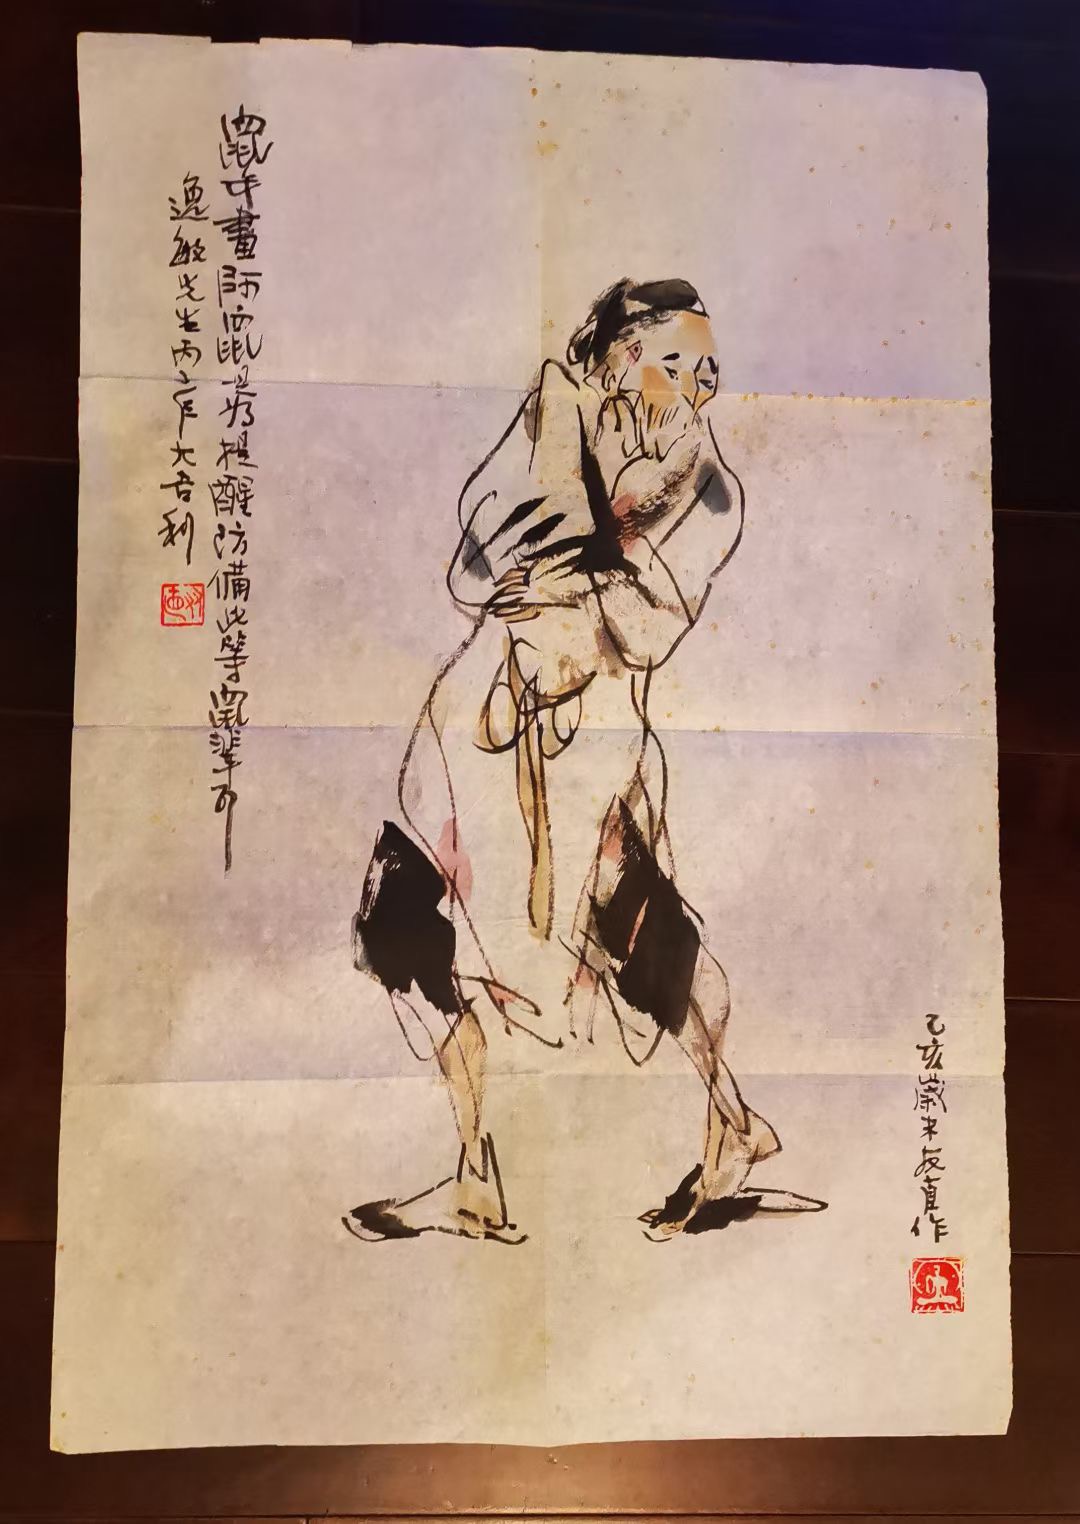 鼠年畫師鼠是為提醒防備此等鼠輩耳
逸敏先生丙子年大吉利
乙亥歲末友直作